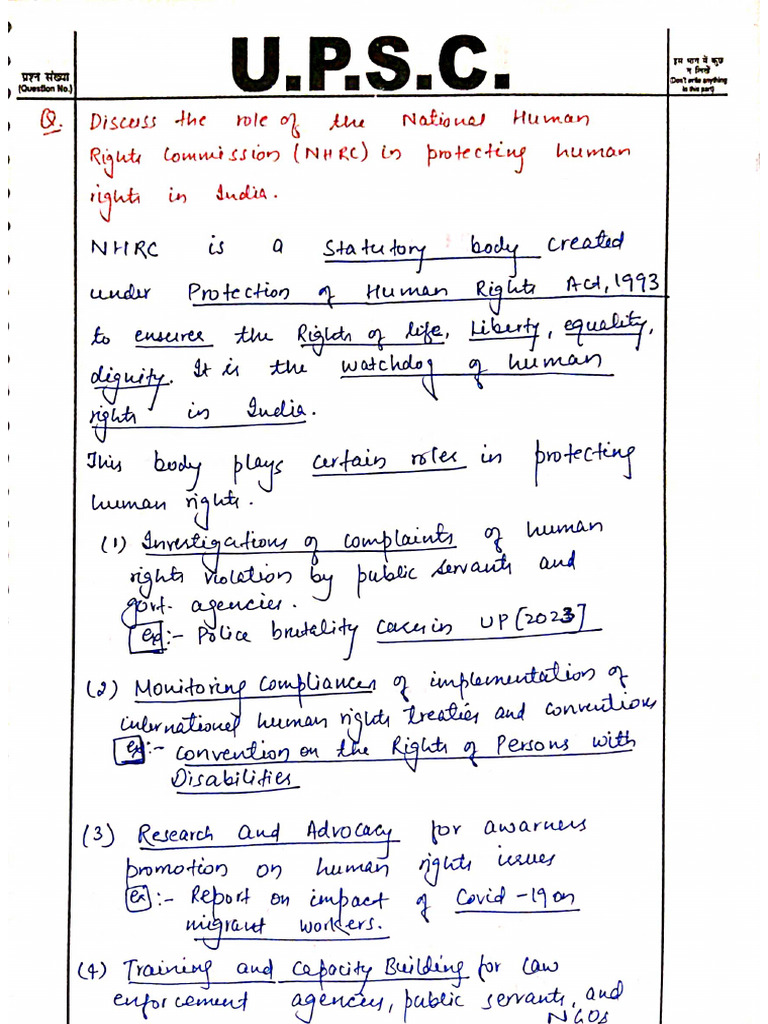 U.P.S.C.
प्रश्न संख्या
(Question No.)
इस भाग में कुछ
न लिखें
(Don't write anything
in this part)
Q. Discuss the role of the National Human
Rights Commission (NHRC) in protecting human
rights in India.
NHRC is a Statutory body created
under Protection of Human Rights Act, 1993
to ensures the Rights of life, Liberty, equality,
dignity. It is the watchdog of human
rights in India.
This body plays certain roles in protecting
human rights.
(1) Investigations of complaints of human
rights violation by public servants and
govt. agencies.
ex:- Police brutality cases in UP [2023]
(2) Monitoring Compliances of implementation of
international human rights treaties and conventions
ex:- convention on the Rights of Persons with
Disabilities
(3) Research and Advocacy for awarness
promotion on human rights issues
ex:- Report on impact of Covid-19 on
migrant workers.
(4) Training and Capacity Building for law
enforcement agencies, public servants, and
NGOs